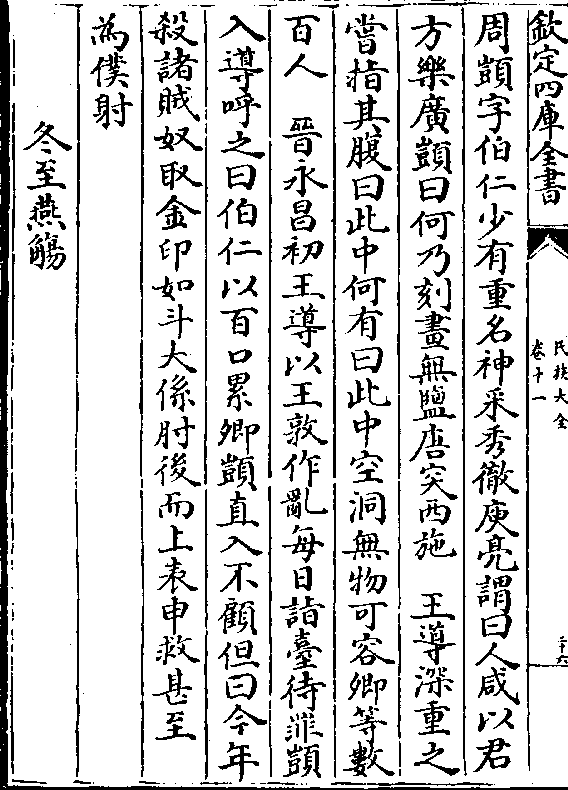 欽定四庫全書
氏族大全
卷十一
二十六
周顗字伯仁少有重名神采秀徹庾亮謂曰人咸以君
方樂廣顗曰何乃刻畫無鹽唐突西施　王導深重之
嘗指其腹曰此中何有曰此中空洞無物可容卿等數
百人　晉永昌初王導以王敦作亂每日詣臺待罪顗
入導呼之曰伯仁以百口累卿顗直入不顧但曰今年
殺諸賊奴取金印如斗大係肘後而上表申救甚至
為僕射
冬至燕觴